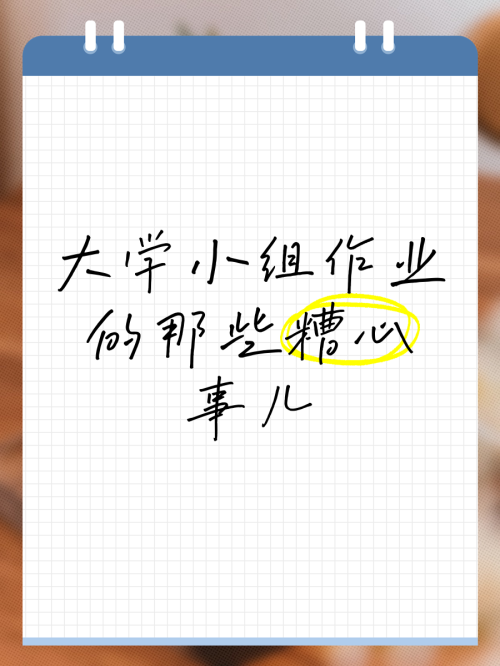 大学小组作业
的那些糟心
事儿